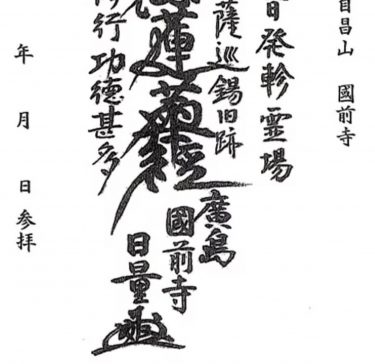 自昌山 國前寺
発軫霊場
薩巡錫旧跡
蓮華經
行功德甚多
廣島
國前寺
日量
年 月 日 参拝